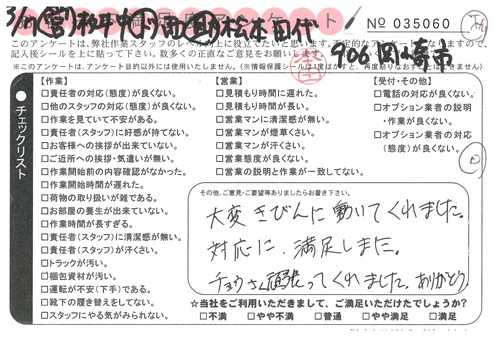 № 035060
このアンケートは、弊社作業スタッフのレベル向上に役立てたいと思います。不定的なアンケートなりますので、
記入後シールを上に貼って下さい。数多くの正直なご意見、ご感想をお待ちしております。
※このアンケートは、アンケート目的以外には使用いたしません。
906 岡崎市
チェックリスト
【作業】
□責任者の対応(態度)が良くない。
□他のスタッフの対応(態度)が良くない。
□作業を見ていて不安がある。
□責任者(スタッフ)に好感が持てない。
□お客様への挨拶が出来ていない。
□ご近所への挨拶・気遣いが無い。
□作業開始前の内容確認がなかった。
□作業開始時間が遅れた。
□荷物の取り扱いが雑である。
□お部屋の養生が出来ていない。
□作業時間が長すぎる。
□責任者(スタッフ)に清潔感が無い。
□責任者(スタッフ)が汗くさい。
□トラックが汚い。
□梱包資材が汚い。
□運転が不安(下手)である。
□靴下の履き替えをしてない。
□スタッフにやる気がみられない。
【営業】
□見積もり時間に遅れた。
□見積もり時間が長い。
□営業マンに清潔感が無い。
□営業マンが煙草くさい。
□営業マンが汗くさい。
□営業態度が良くない。
□営業の説明と作業が一致してない。
【受付・その他】
□電話の対応が良くない。
□オプション業者の説明
・作業が良くない。
□オプション業者の対応
(態度)が良くない。
その他、ご意見・ご要望等ありましたらお書き下さい。
大変きびんに動いてくれました。
対応に、満足しました。
チョウさん頑張ってくれました。ありがとう
☆当社をご利用いただきまして、ご満足いただけたでしょうか?
□不満 □やや不満 □普通 □やや満足 □満足